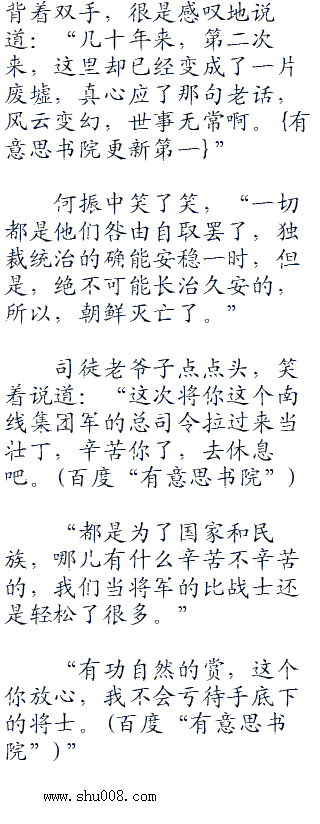 背着双手，很是感叹地说
道：“几十年来，第二次
来，这里却已经变成了一片
废墟，真心应了那句老话，
风云变幻，世事无常啊。{有
意思书院更新第一}”
何振中笑了笑，“一切
都是他们咎由自取罢了，独
裁统治的确能安稳一时，但
是，绝不可能长治久安的，
所以，朝鲜灭亡了。”
司徒老爷子点点头，笑
着说道：“这次将你这个南
线集团军的总司令拉过来当
壮丁，辛苦你了，去休息
吧。(百度“有意思书院”)
“都是为了国家和民
族，哪儿有什么辛苦不辛苦
的，我们当将军的比战士还
是轻松了很多。”
“有功自然的赏，这个
你放心，我不会亏待手底下
的将士。(百度“有意思书
院”)”
www.shu008.com